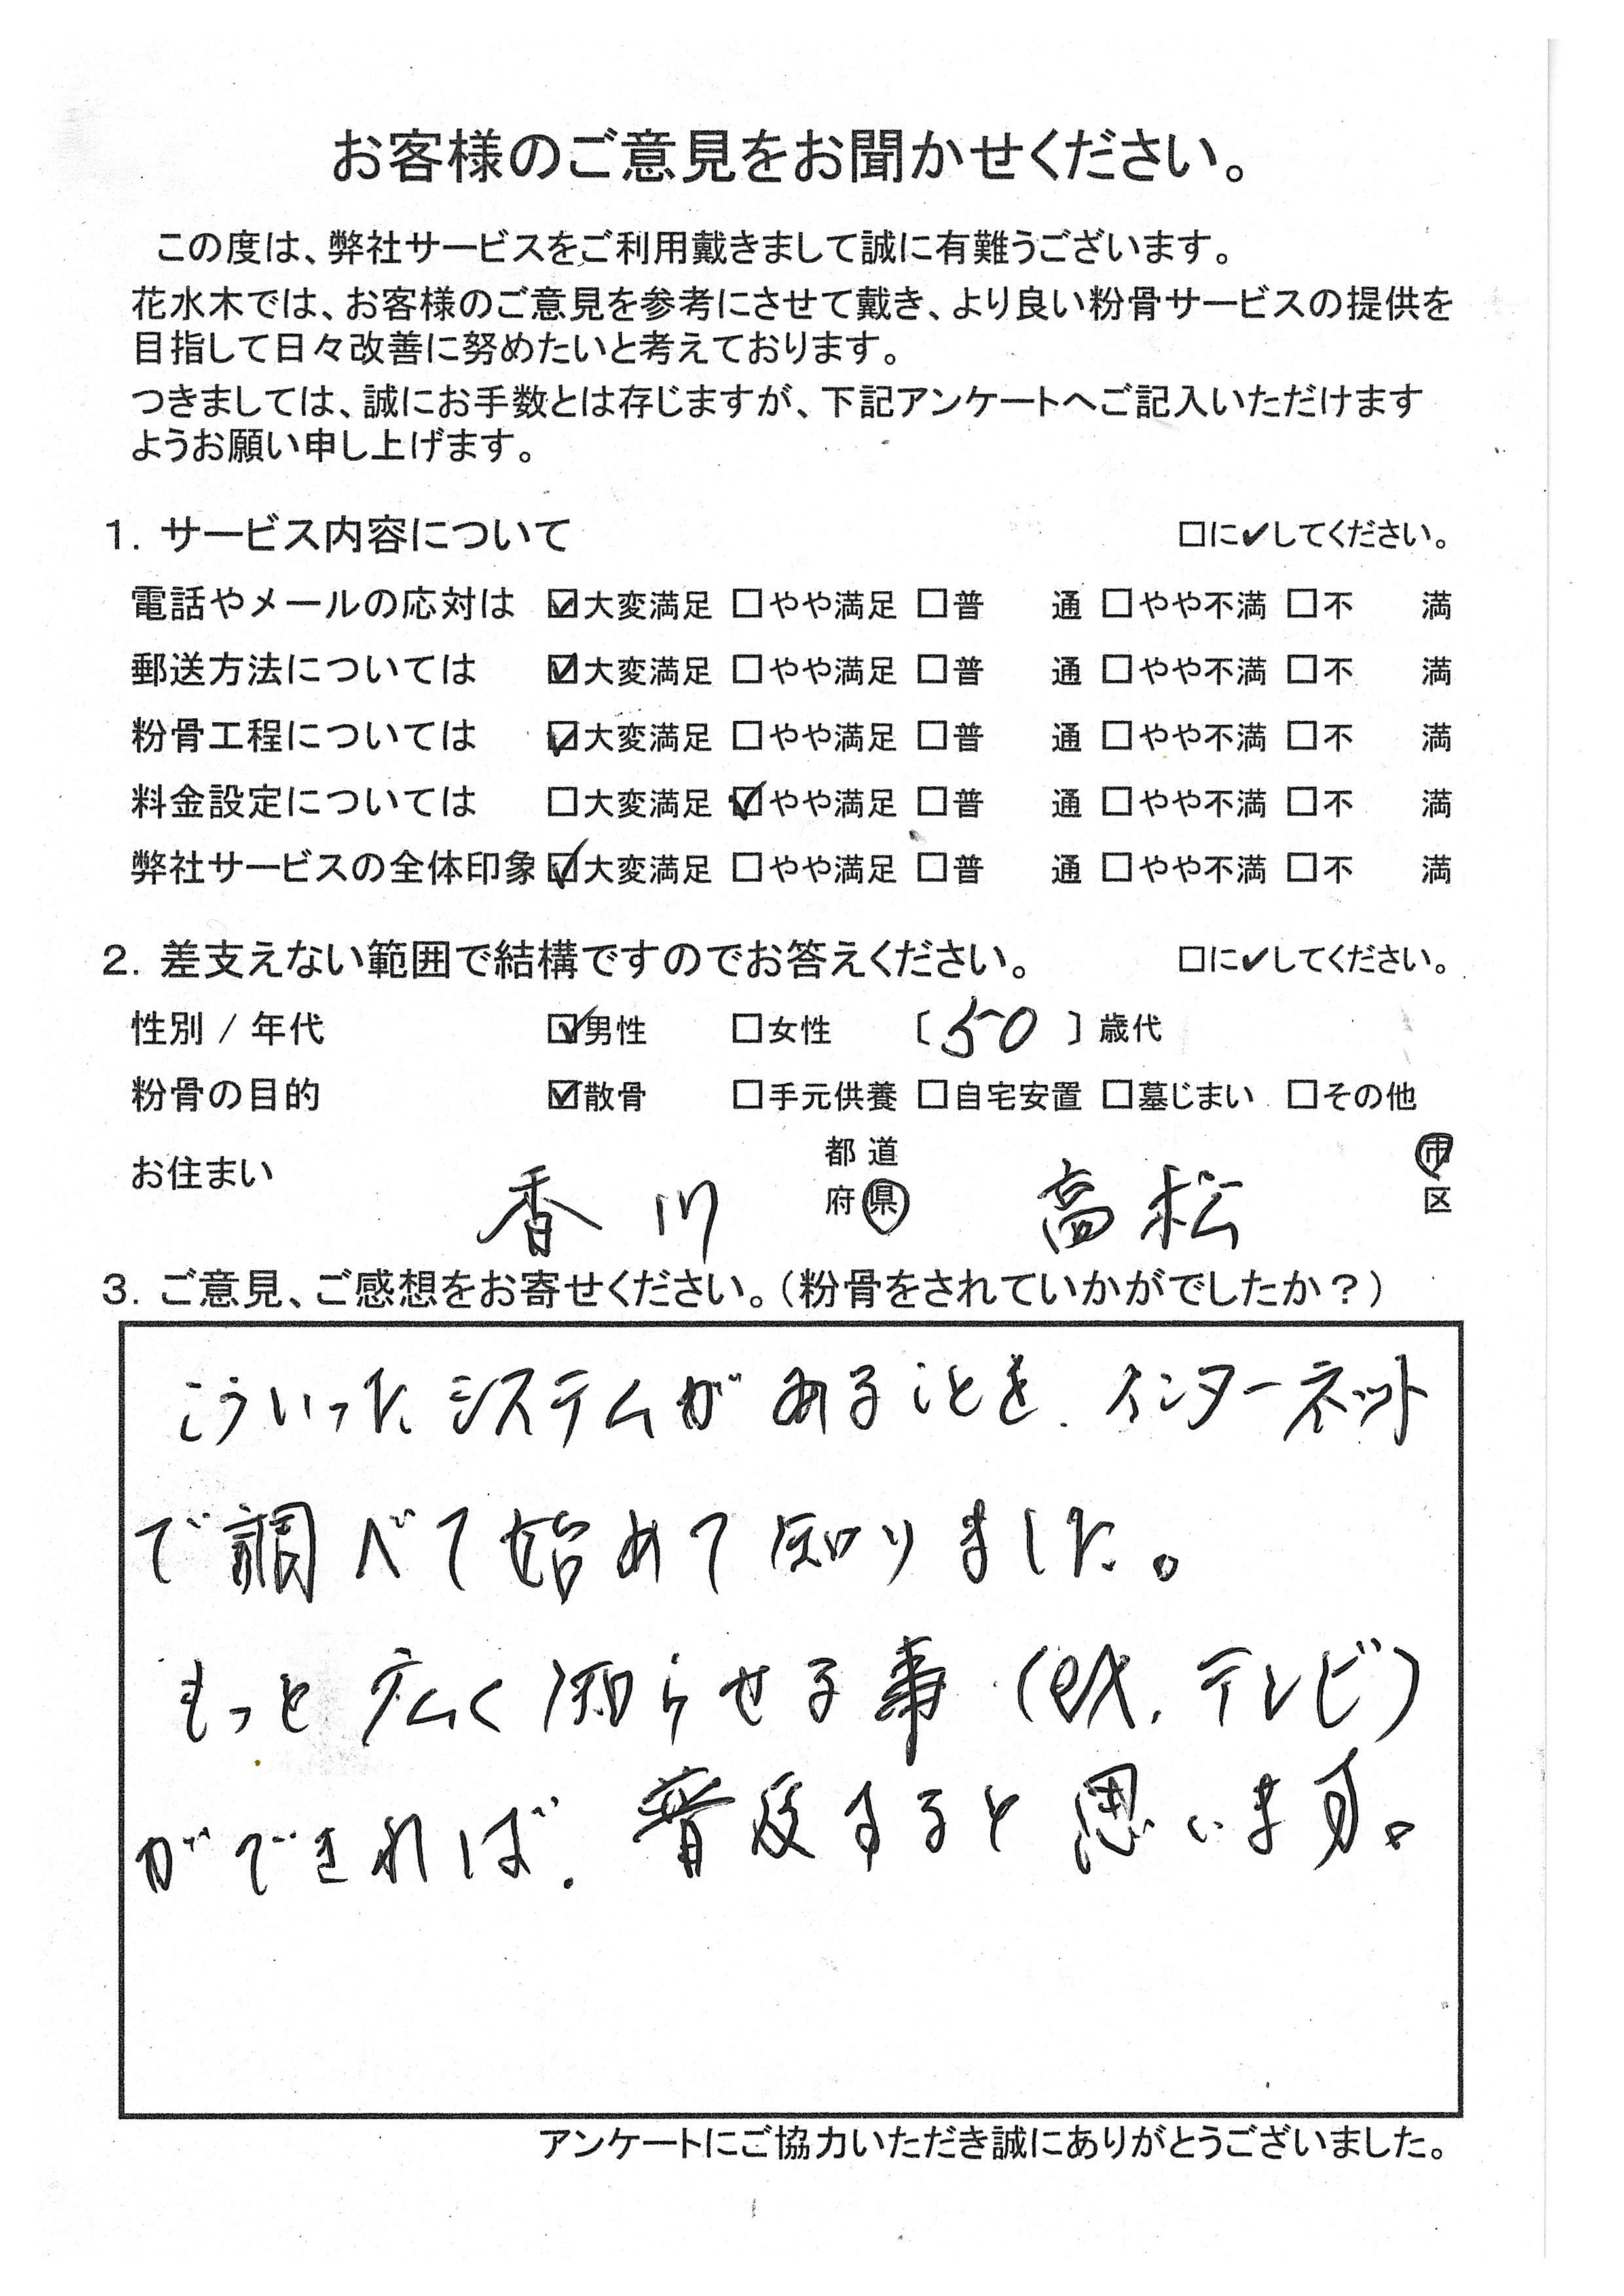 お客様のご意見をお聞かせください。
この度は、弊社サービスをご利用戴きまして誠に有難うございます。
花水木では、お客様のご意見を参考にさせて戴き、より良い粉骨サービスの提供を
目指して日々改善に努めたいと考えております。
つきましては、誠にお手数とは存じますが、下記アンケートへご記入いただけます
ようお願い申し上げます。
1. サービス内容について □に✔してください。
電話やメールの応対は ☑大変満足 □やや満足 □普 通 □やや不満 □不 満
郵送方法については ☑大変満足 □やや満足 □普 通 □やや不満 □不 満
粉骨工程については ☑大変満足 □やや満足 □普 通 □やや不満 □不 満
料金設定については □大変満足 ☑やや満足 □普 通 □やや不満 □不 満
弊社サービスの全体印象 ☑大変満足 □やや満足 □普 通 □やや不満 □不 満
2. 差支えない範囲で結構ですのでお答えください。 □に✔してください。
性別 / 年代 ☑男性 □女性 〔 50 〕歳代
粉骨の目的 ☑散骨 □手元供養 □自宅安置 □墓じまい □その他
お住まい 香川 都道府県 高松 市区
3. ご意見、ご感想をお寄せください。（粉骨をされていかがでしたか？）
こういったシステムがあることを、インターネット
で調べて始めて知りました。
もっと広く知らせる事（ex. テレビ）
ができれば、普及すると思います。
アンケートにご協力いただき誠にありがとうございました。